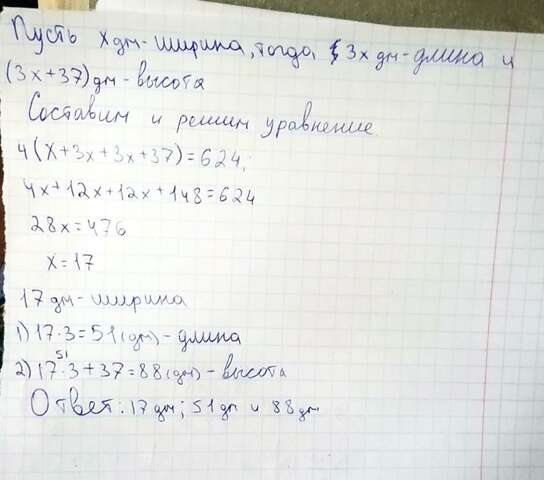 Пусть x дм - ширина, тогда 3x дм - длина и
(3x+37) дм - высота
Составим и решим уравнение
4(x+3x+3x+37)=624;
4x+12x+12x+148=624
28x=476
x=17
17 дм - ширина
1) 17·3=51(дм) - длина
51
2) 17·3+37=88(дм) - высота
Ответ: 17 дм; 51 дм и 88 дм